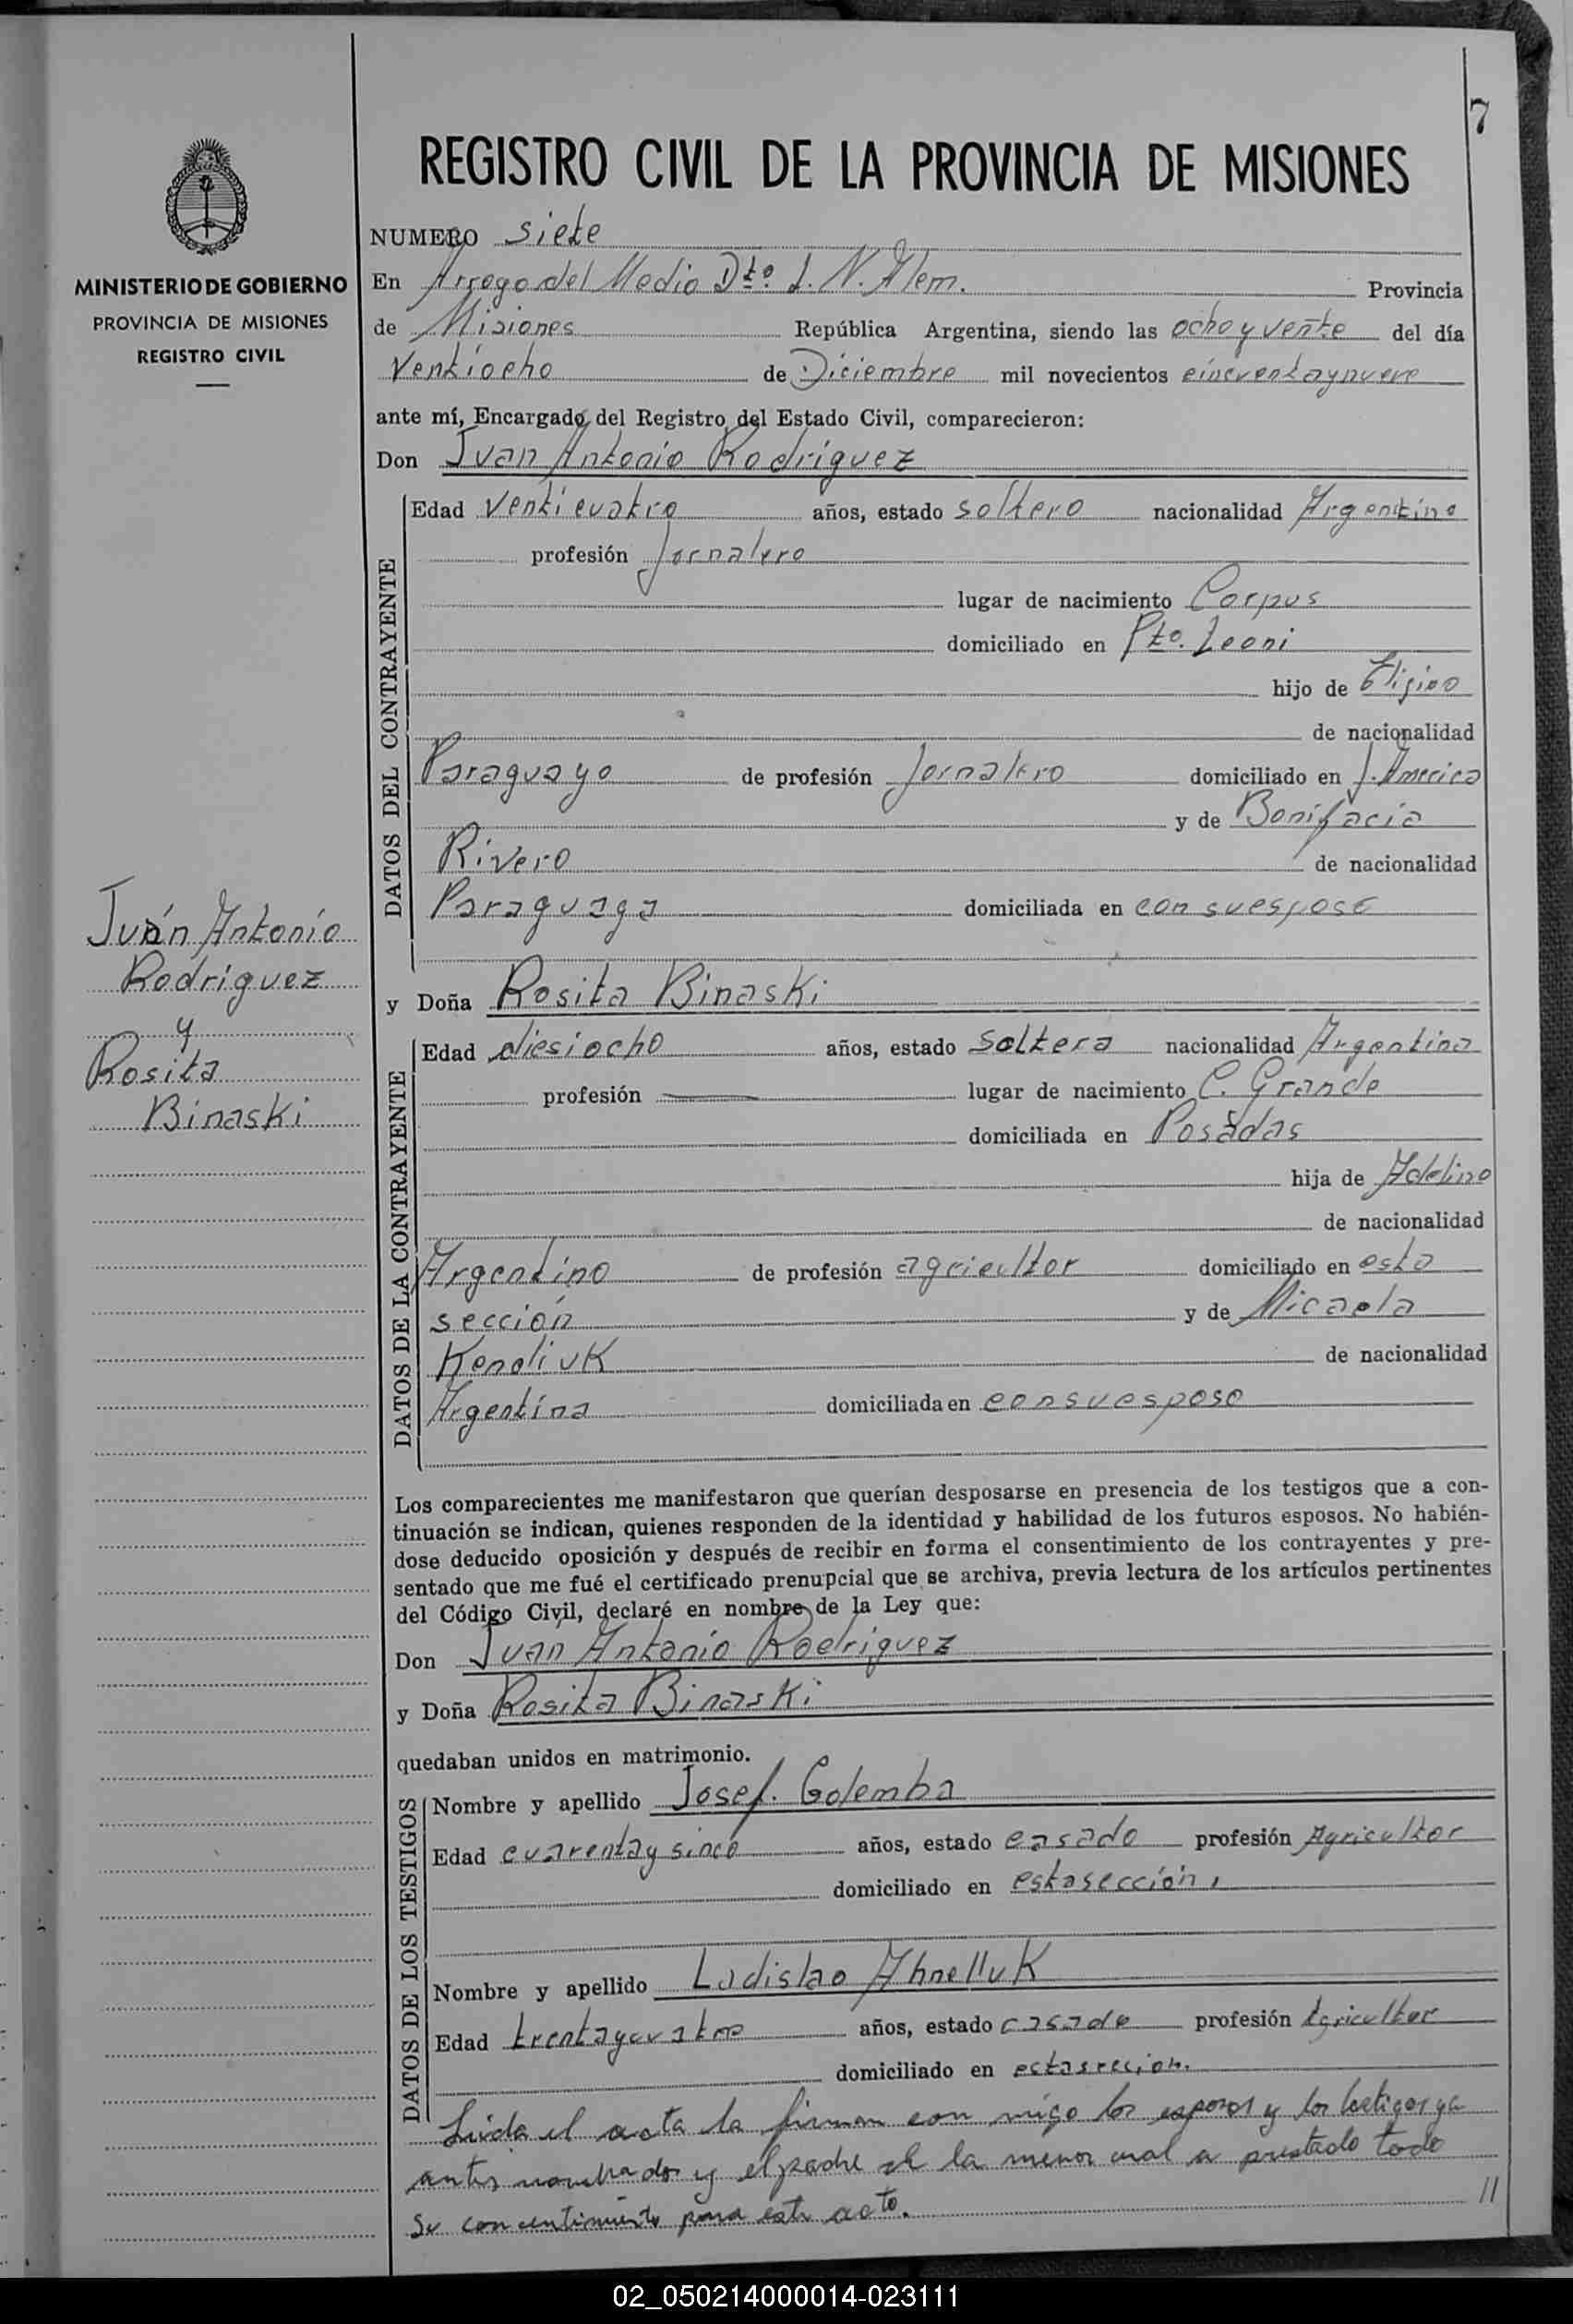 7
REGISTRO CIVIL DE LA PROVINCIA DE MISIONES
MINISTERIO DE GOBIERNO
PROVINCIA DE MISIONES
REGISTRO CIVIL
NUMERO siete
En Arroyo del Medio Dto. L. N. Alem. Provincia
de Misiones República Argentina, siendo las ocho y vente del día
Ventiocho de Diciembre mil novecientos cincuentaynueve
ante mí, Encargado del Registro del Estado Civil, comparecieron:
Don Juan Antonio Rodriguez
DATOS DEL CONTRAYENTE
Edad venticuatro años, estado soltero nacionalidad Argentino
profesión Jornalero
lugar de nacimiento Corpus
domiciliado en Pto. Leoni
hijo de
de nacionalidad
Paraguayo de profesión Jornalero domiciliado en J. America
y de Bonifacia
Rivero de nacionalidad
Paraguaya domiciliada en con suesposo
Juán Antonio
Rodriguez
y
Rosita
Binaski
y Doña Rosita Binaski
DATOS DE LA CONTRAYENTE
Edad diesiocho años, estado Soltera nacionalidad Argentina
profesión lugar de nacimiento C. Grande
domiciliada en Posadas
hija de Adelino
de nacionalidad
Argentino de profesión agricultor domiciliado en esta
sección y de Micaela
Kendiuk de nacionalidad
Argentina domiciliada en consuesposo
Los comparecientes me manifestaron que querían desposarse en presencia de los testigos que a con-
tinuación se indican, quienes responden de la identidad y habilidad de los futuros esposos. No habién-
dose deducido oposición y después de recibir en forma el consentimiento de los contrayentes y pre-
sentado que me fué el certificado prenupcial que se archiva, previa lectura de los artículos pertinentes
del Código Civil, declaré en nombre de la Ley que:
Don Juan Antonio Rodriguez
y Doña Rosita Binaski
quedaban unidos en matrimonio.
DATOS DE LOS TESTIGOS
Nombre y apellido Josef. Golemba
Edad cuarentay sinco años, estado casado profesión Agricultor
domiciliado en estasección,
Nombre y apellido Ladislao
Edad trentaycuatro años, estado casado profesión Agricultor
domiciliado en estasección.
Leida el acta la firman con migo los esposos y los testigos ya
antes nombrados y el padre de la menor cual a prestado todo
su concentimiento para este acto. //
02_050214000014-023111